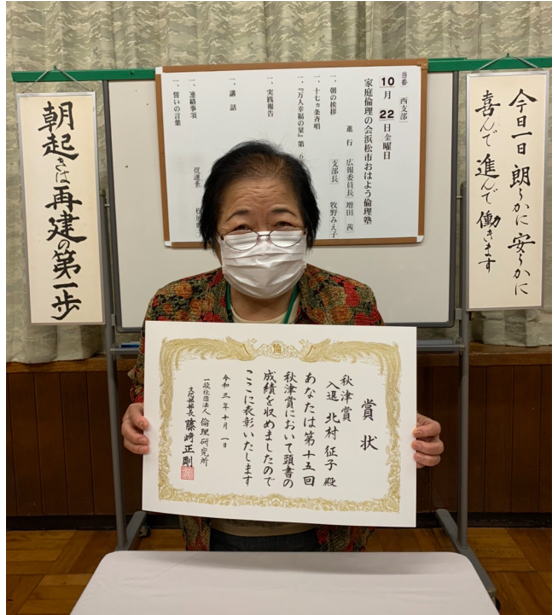 今日一日 朗らかに 安らかに
喜んで 進んで 働きます
当番 西支部
10月22日金曜日
家庭倫理の会浜松市おはよう倫理塾
進行 広報委員長 増田 茜
一、朝の挨拶 支部長 牧野みえ子
一、十七ヵ条斉唱
一、『万人幸福の栞』第
一、実践報告
一、講話
一、連絡事項
一、誓いの言葉
朝起きは再建の第一歩
賞状
秋津賞
入選 北村 征子 殿
あなたは第十五回
秋津賞において頭書の
成績を収めましたので
ここに表彰いたします
令和三年十月一日
一般社団法人 倫理研究所
文化部部長 藤﨑正剛